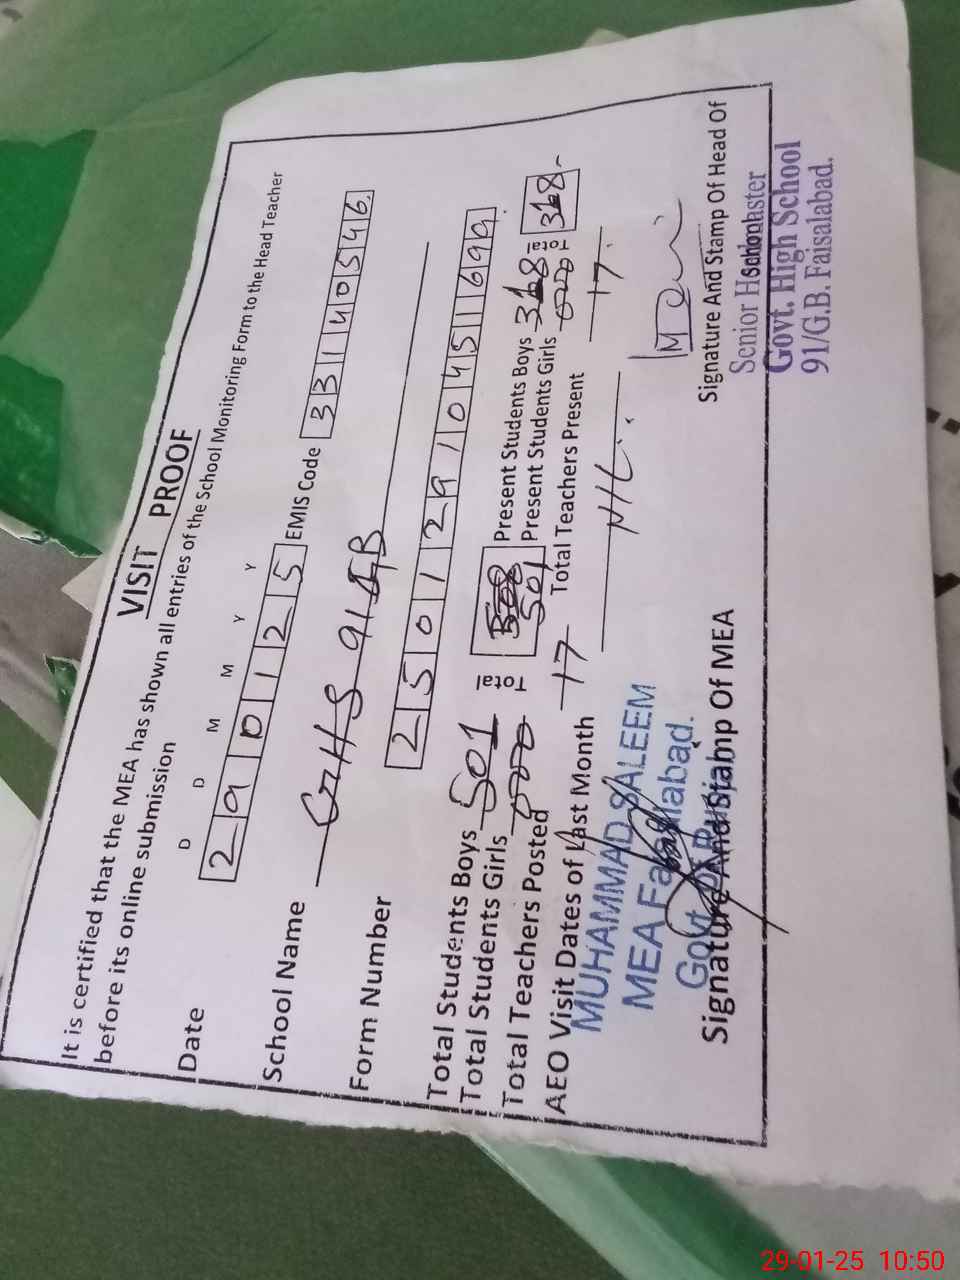 VISIT PROOF
It is certified that the MEA has shown all entries of the School Monitoring Form to the Head Teacher
before its online submission
D D M M Y Y
Date 290125 EMIS Code 33140546
School Name GHS 91 GB
Form Number 25012910451699
Total Students Boys 501 Total 501 Present Students Boys 318 Total 318
Total Students Girls 000 Present Students Girls 000
Total Teachers Posted 17 Total Teachers Present 17
AEO Visit Dates of Last Month NIL
MUHAMMAD SALEEM
MEA Faisalabad.
Govt. of
Signature And Stamp Of MEA
Signature And Stamp Of Head Of
School
Senior Headmaster
Govt. High School
91/G.B. Faisalabad.
29-01-25 10:50